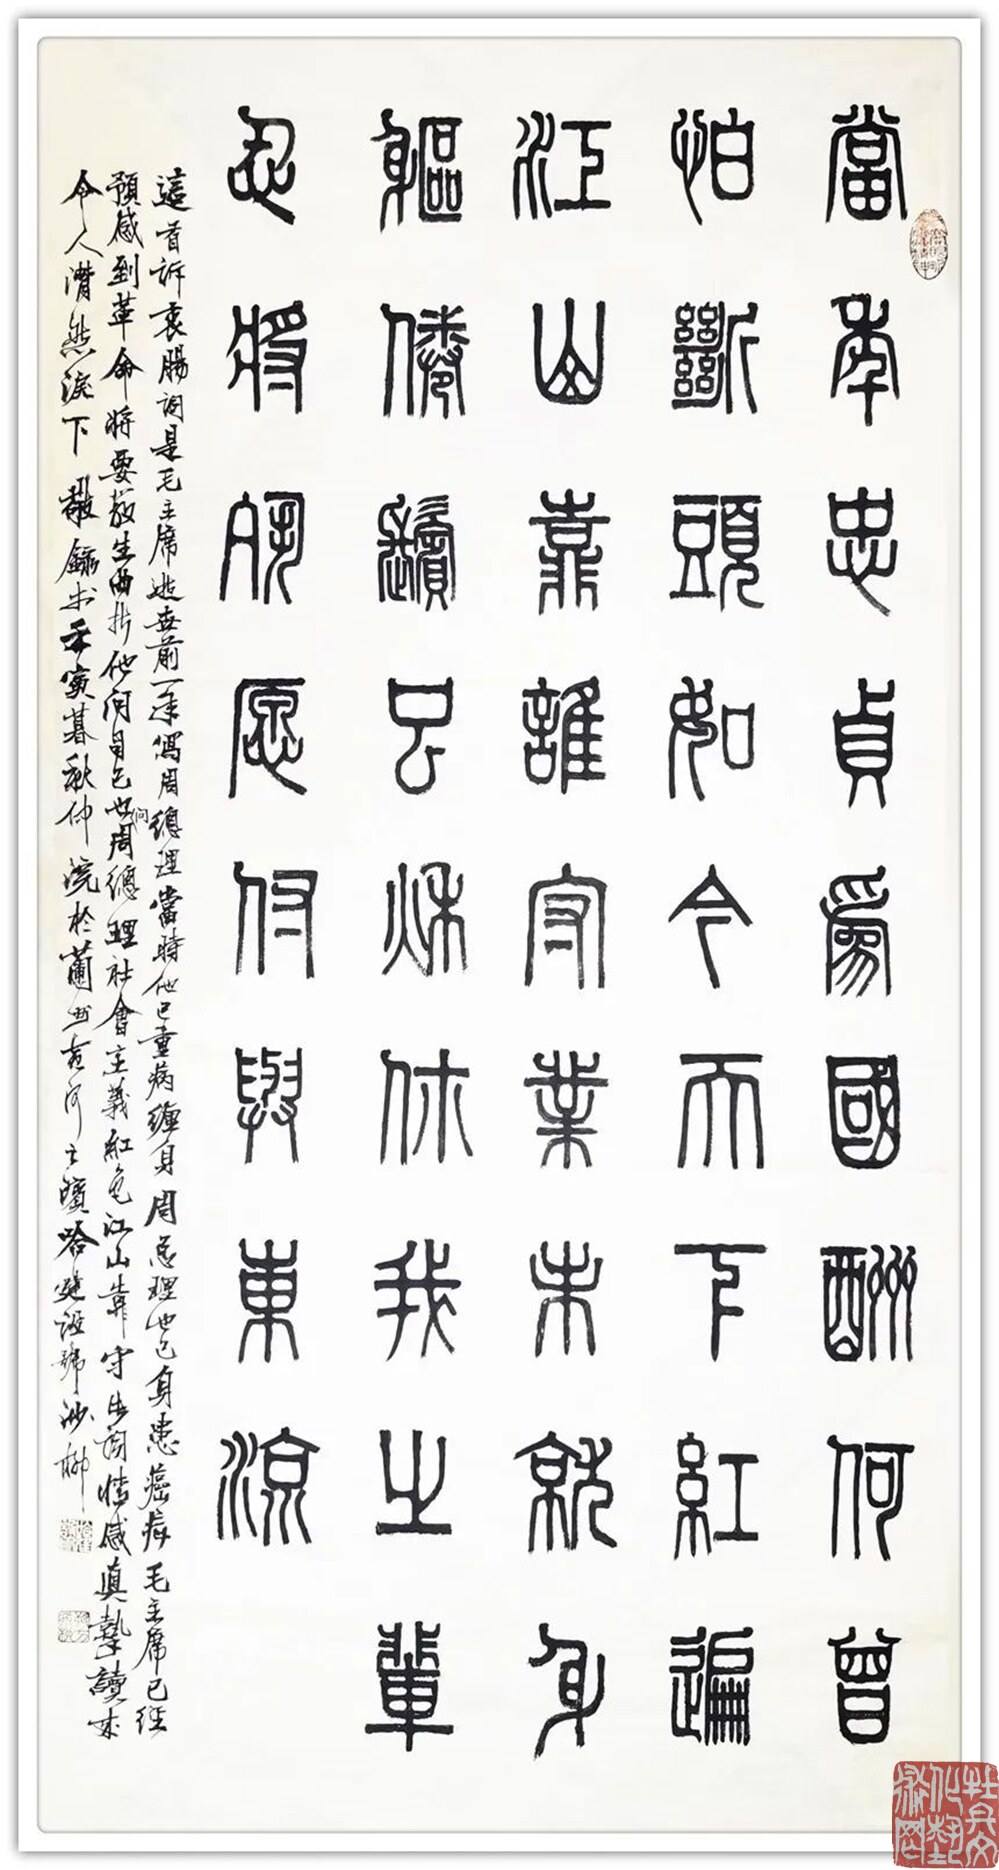 當年忠貞爲國酬何曾
怕斷頭如今天下紅遍
江山靠誰守業未就身
軀倦鬢已秋你我之輩
忍將夙愿付與東流
這首訴衷腸詞是毛主席逝世前一年寫周總理當時他已重病纏身周总理也已身患癌疾毛主席已經
預感到革命將要發生曲折他问自己也问周總理社會主義紅色江山靠守生詞情感真摯讀來
令人潸然淚下敬錄於壬寅暮秋仲浣於蘭州黄河之濱